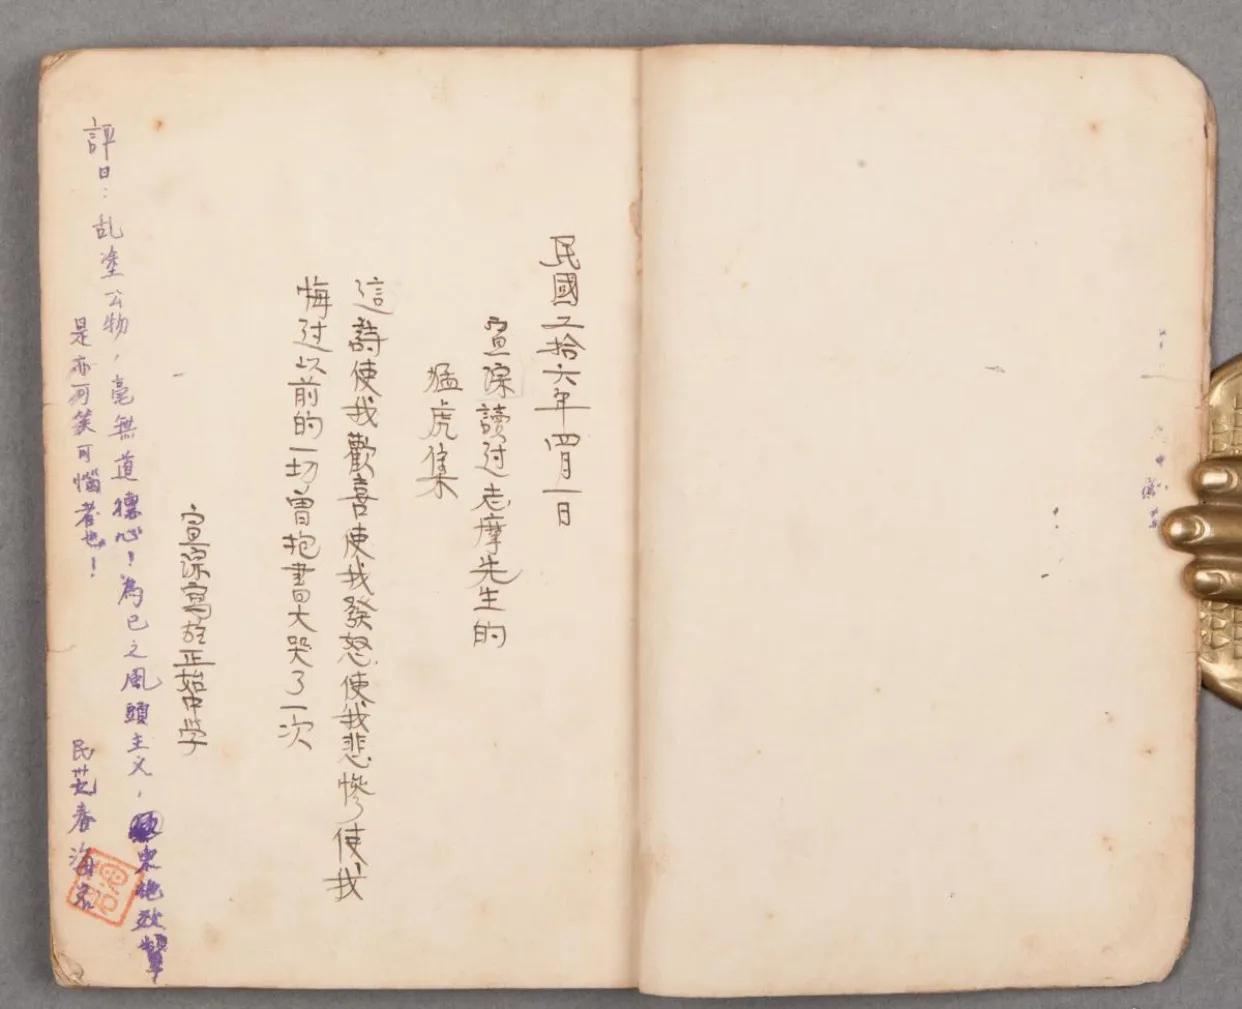 民國二拾六年四月一日
宣深讀过志摩先生的
猛虎集
這詩使我歡喜使我發怒使我悲慘使我
悔过以前的一切曾抱書大哭了一次
宣深寫於正始中学
評曰：乱塗公物，毫無道德心！為已之風頭主义，東施效顰
是亦可笑可惱者也！
民廿七春海